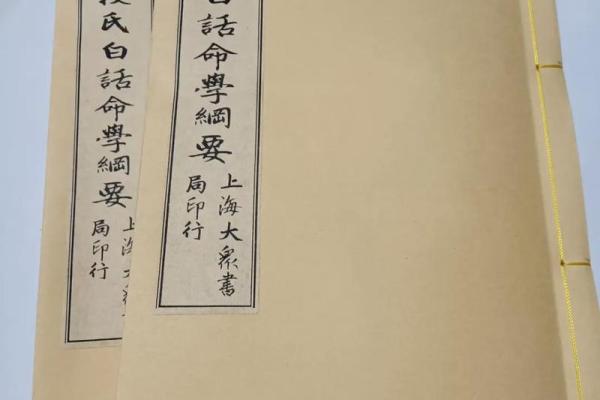 白話命學綱要
上海大衆書
局印行
氏白話命學綱要
上海大
局印行